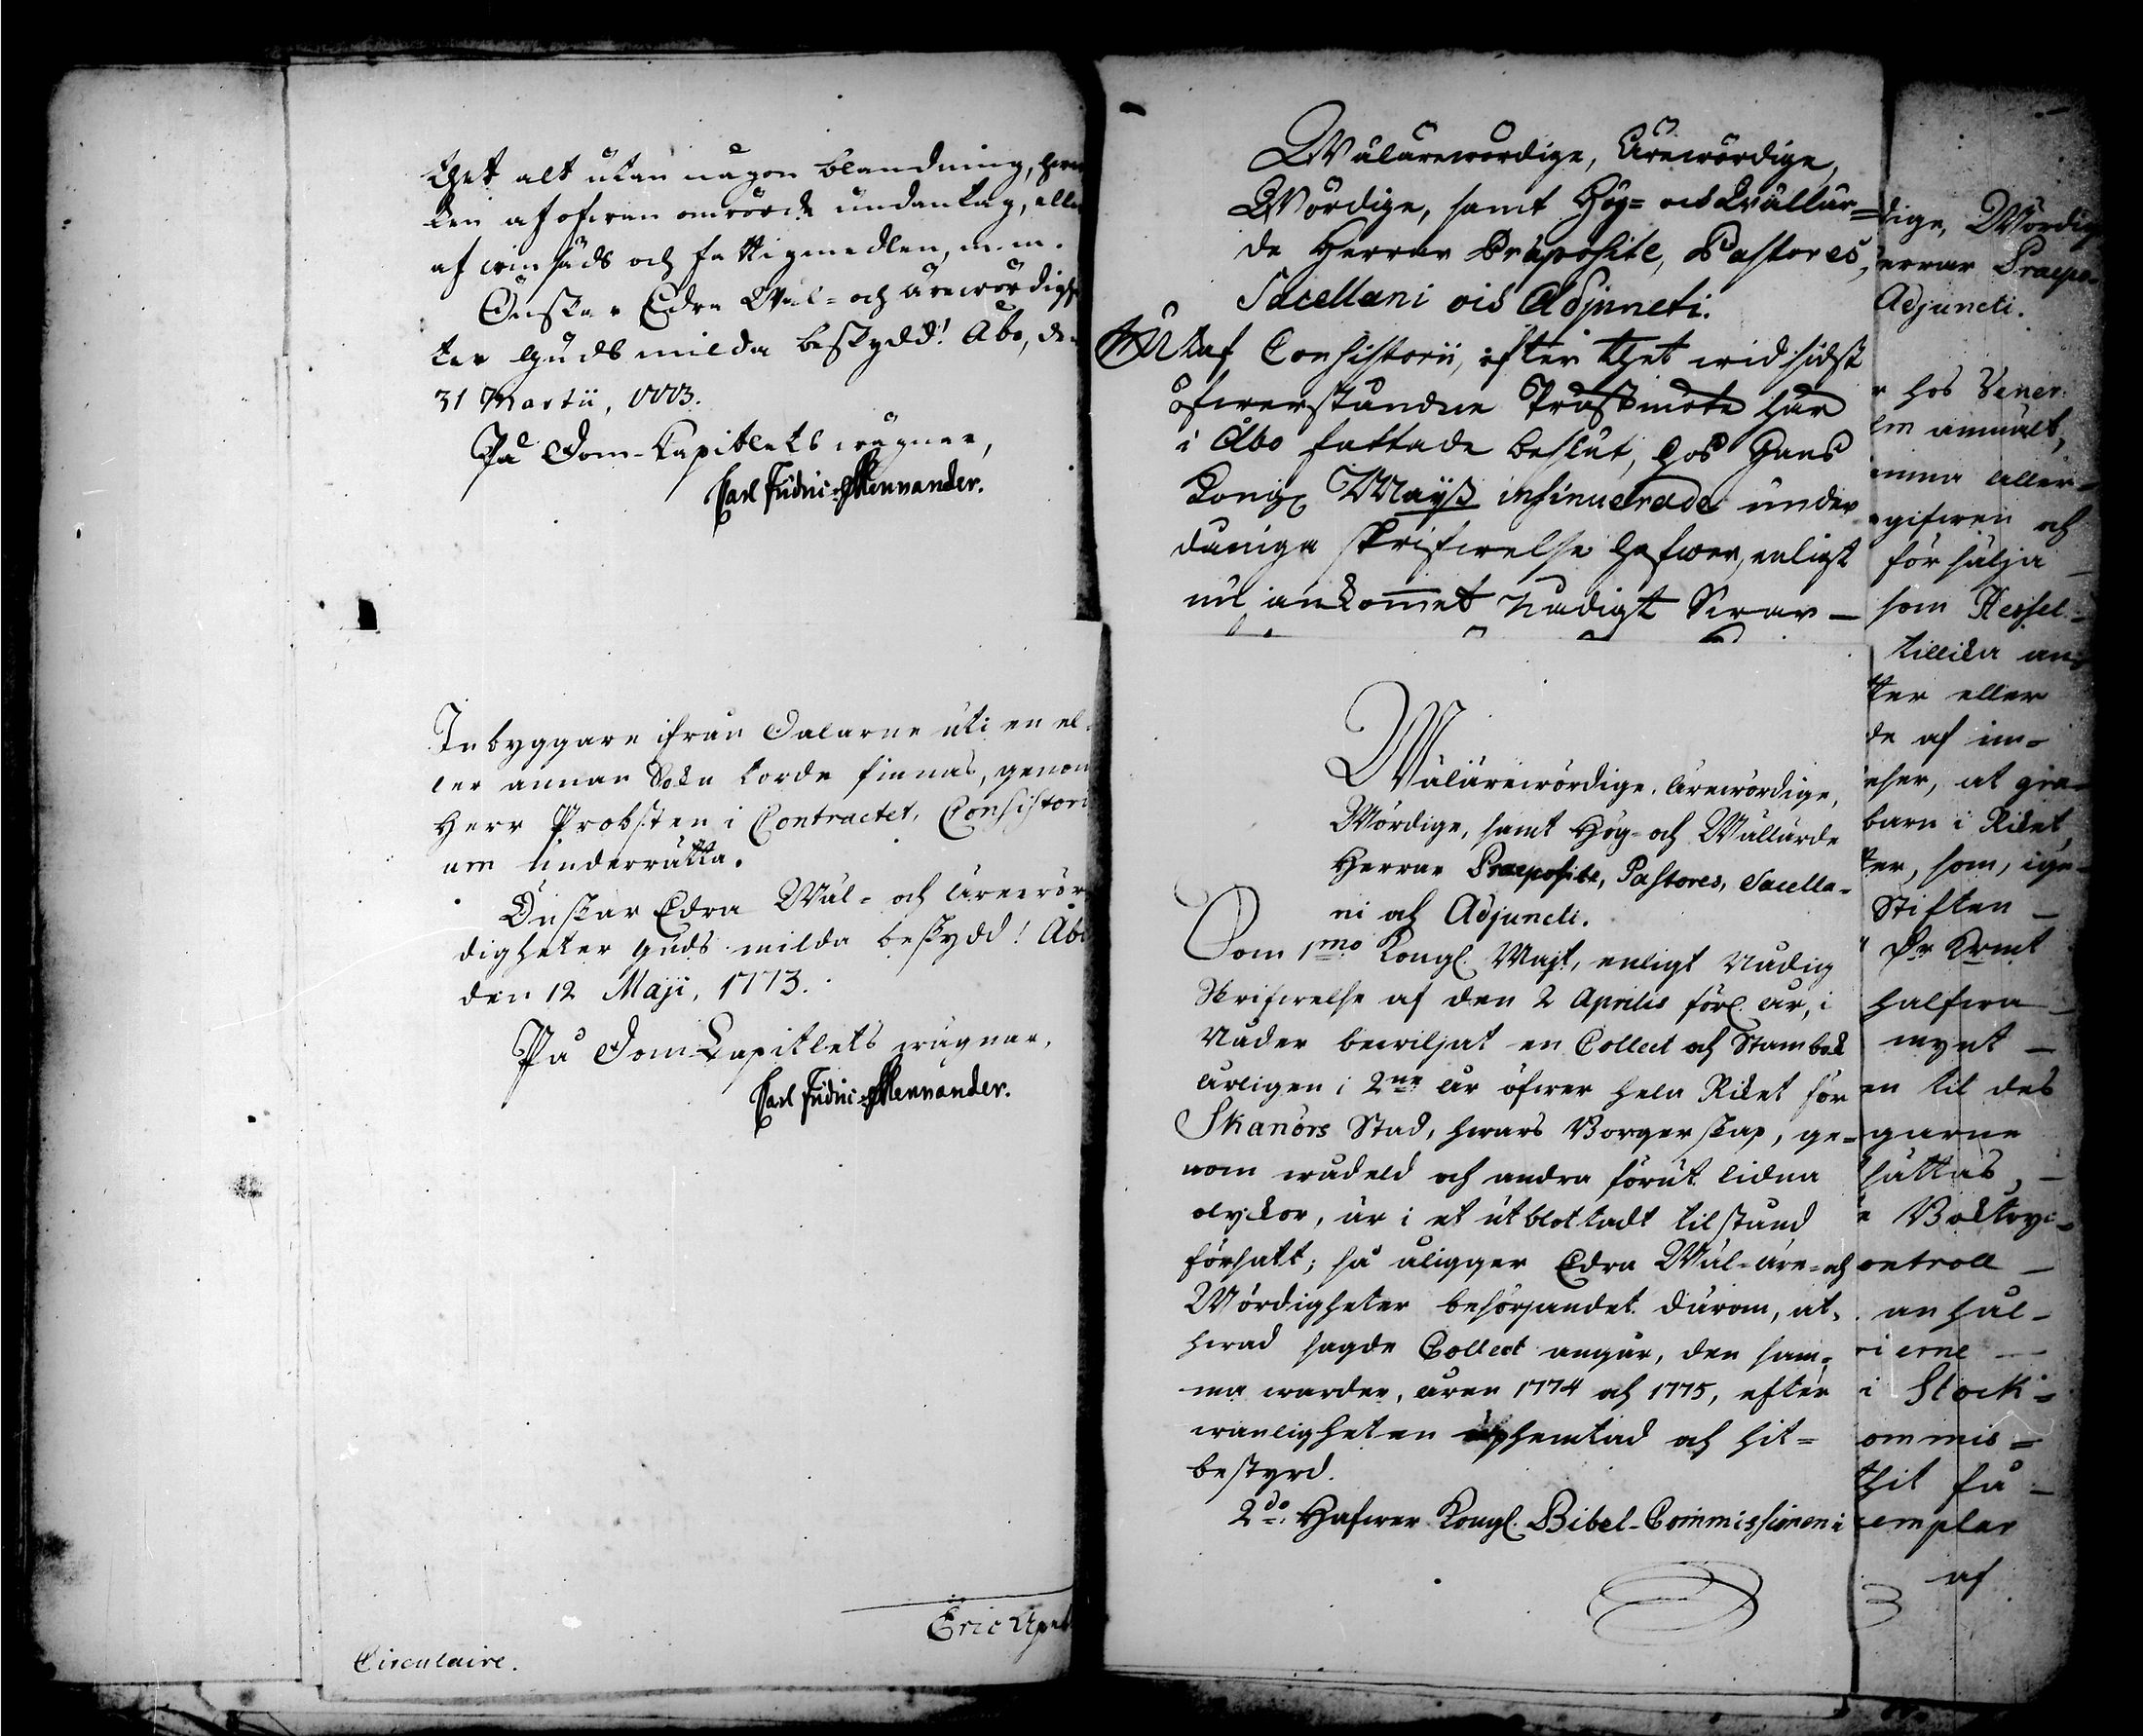 thet alt utan någon blandning,
ken af ofwan omrörde undantag, elle
af winsäds och fattigmedlen, m. m.
Önskar Edra Wäl- och ärewördighe
ter Guds milda beskydd! Åbo, den
31 Martii, 1773.
På Dom-Capitlets wägnar,
Carl Fridric Mennander.
Inbyggare ifrån Dalarne uti en el-
ler annan Sokn torde finnas, genom
Herr Probsten i Contractet, Consistori
um underrätta.
Önskar Edra Wäl- och Ärewör
digheter Guds milda beskydd! Åbo
den 12 Maji, 1773.
På Dom-Capitlets wägnar,
Carl Fridric Mennander.
Eric
Circulaire.
Wälärewördige, Ärewördige,
Wördige, samt Hög- och Wällär-
de Herrar Præposite, Pastores,
Sacellani och Adjuncti.
Utaf Consistorii, efter thet wid sidst
öfwerståndne Prästmöte här
i Åbo fattade beslut, hos Hans
Kongl. Mayst insinuerade under
dåniga skrifwelse hafwer, enligt
nu ankommet Nådigt Swar –
Wälärewördige, Ärewördige,
Wördige, samt Hög- och Wällärde
Herrar Præposite, Pastores, Sacella-
ni och Adjuncti.
Som 1mo Kongl. Majt, enligt Nådig
Skrifwelse af den 2 Aprilis förl. år, i
Nåder bewiljat en Collect och Stambok
årligen i 2ne år öfwer hela Riket för
Skanörs Stad, hwars Borgerskap, ge-
nom wådeld och andra förut lidna
olyckor, är i et utblottadt tilstånd
försatt; så åligger Edra Wäl-äre- och
Wördigheter besörjandet därom, at
hwad sagde Collect angår, den sam-
ma warder, åren 1774 och 1775, efter
wanligheten uphemtad och hit-
bestyrd.
2do. Hafwer Kongl. Bibel-Commissionen i
dige, Wördig
errar Præpo-
Adjuncti.
r hos Vener.
lm anmält,
imma aller-
gifwen och
försälja –
som Hessel-
tillika an-
ter eller
de af im-
eser, at gra-
barn i Riket
ter, som, ige-
Stiften –
Dr Krmt
halfwa –
mynt –
en til des
garne
sättas, –
Boktryc-
ontroll –
anhål-
rierne –
i Stock-
ommis-
thit få –
xemplar
af